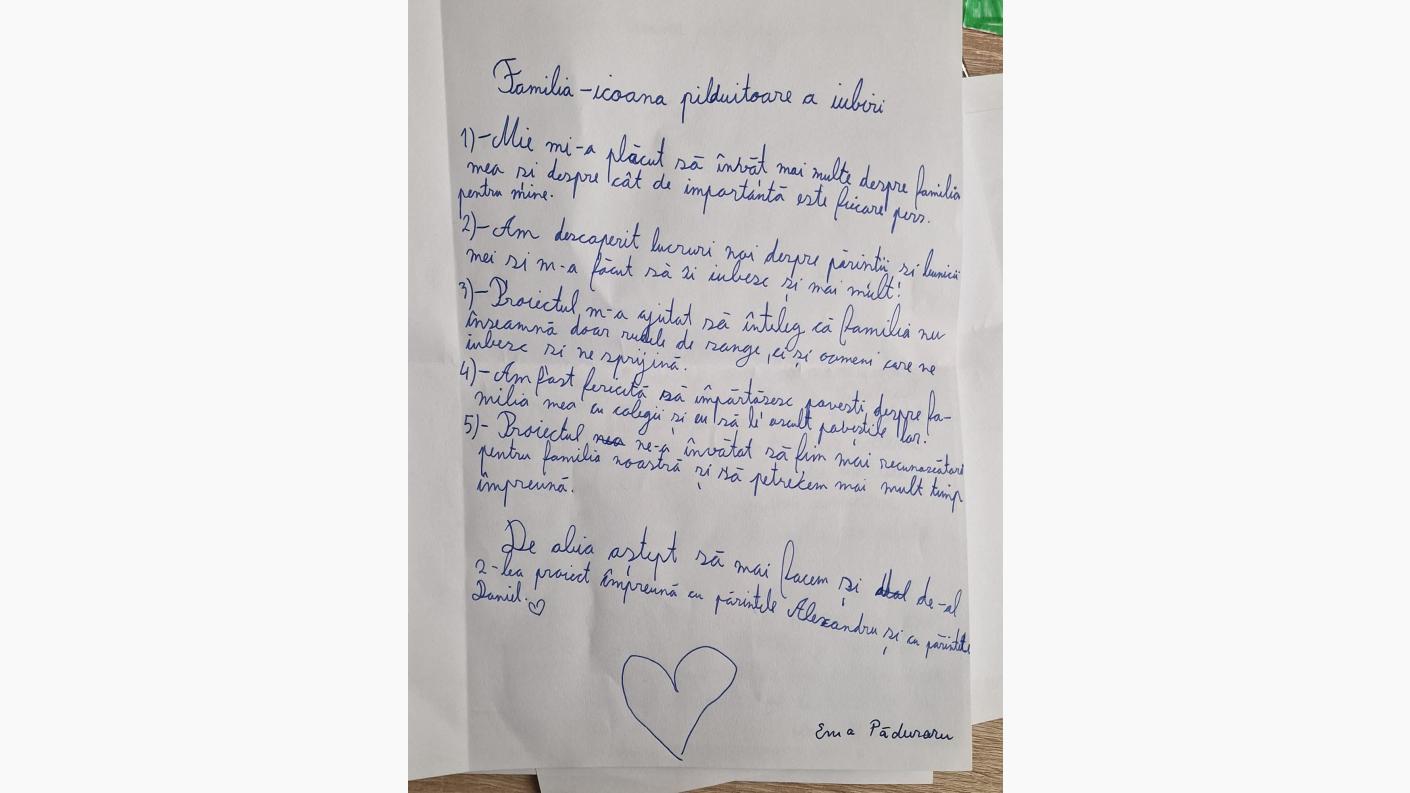 Familia-icoana pilduitoare a iubiri
1)-Mie mi-a plăcut să învăt mai multe despre familia
mea si despre cât de importantă este fiecare pers.
pentru mine.
2)-Am descoperit lucruri noi despre părintii si bunicii
mei si m-a făcut să îi iubesc și mai mult!
3)-Proiectul m-a ajutat să înteleg că familia nu
înseamnă doar rudele de sange, ci și oameni care ne
iubesc si ne sprijină.
4)-Am fost fericită să împărtăsesc povesti despre fa-
milia mea cu colegii și eu să le ascult povestile lor.
5)-Proiectul ne-a învătat să fim mai recunoscători
pentru familia noastră și să petrekem mai mult timp
împreună.
De abia aștept să mai facem și de-al
2-lea proiect împreună cu părintele Alexandru și cu părintele
Daniel.♡
Ema Păduraru